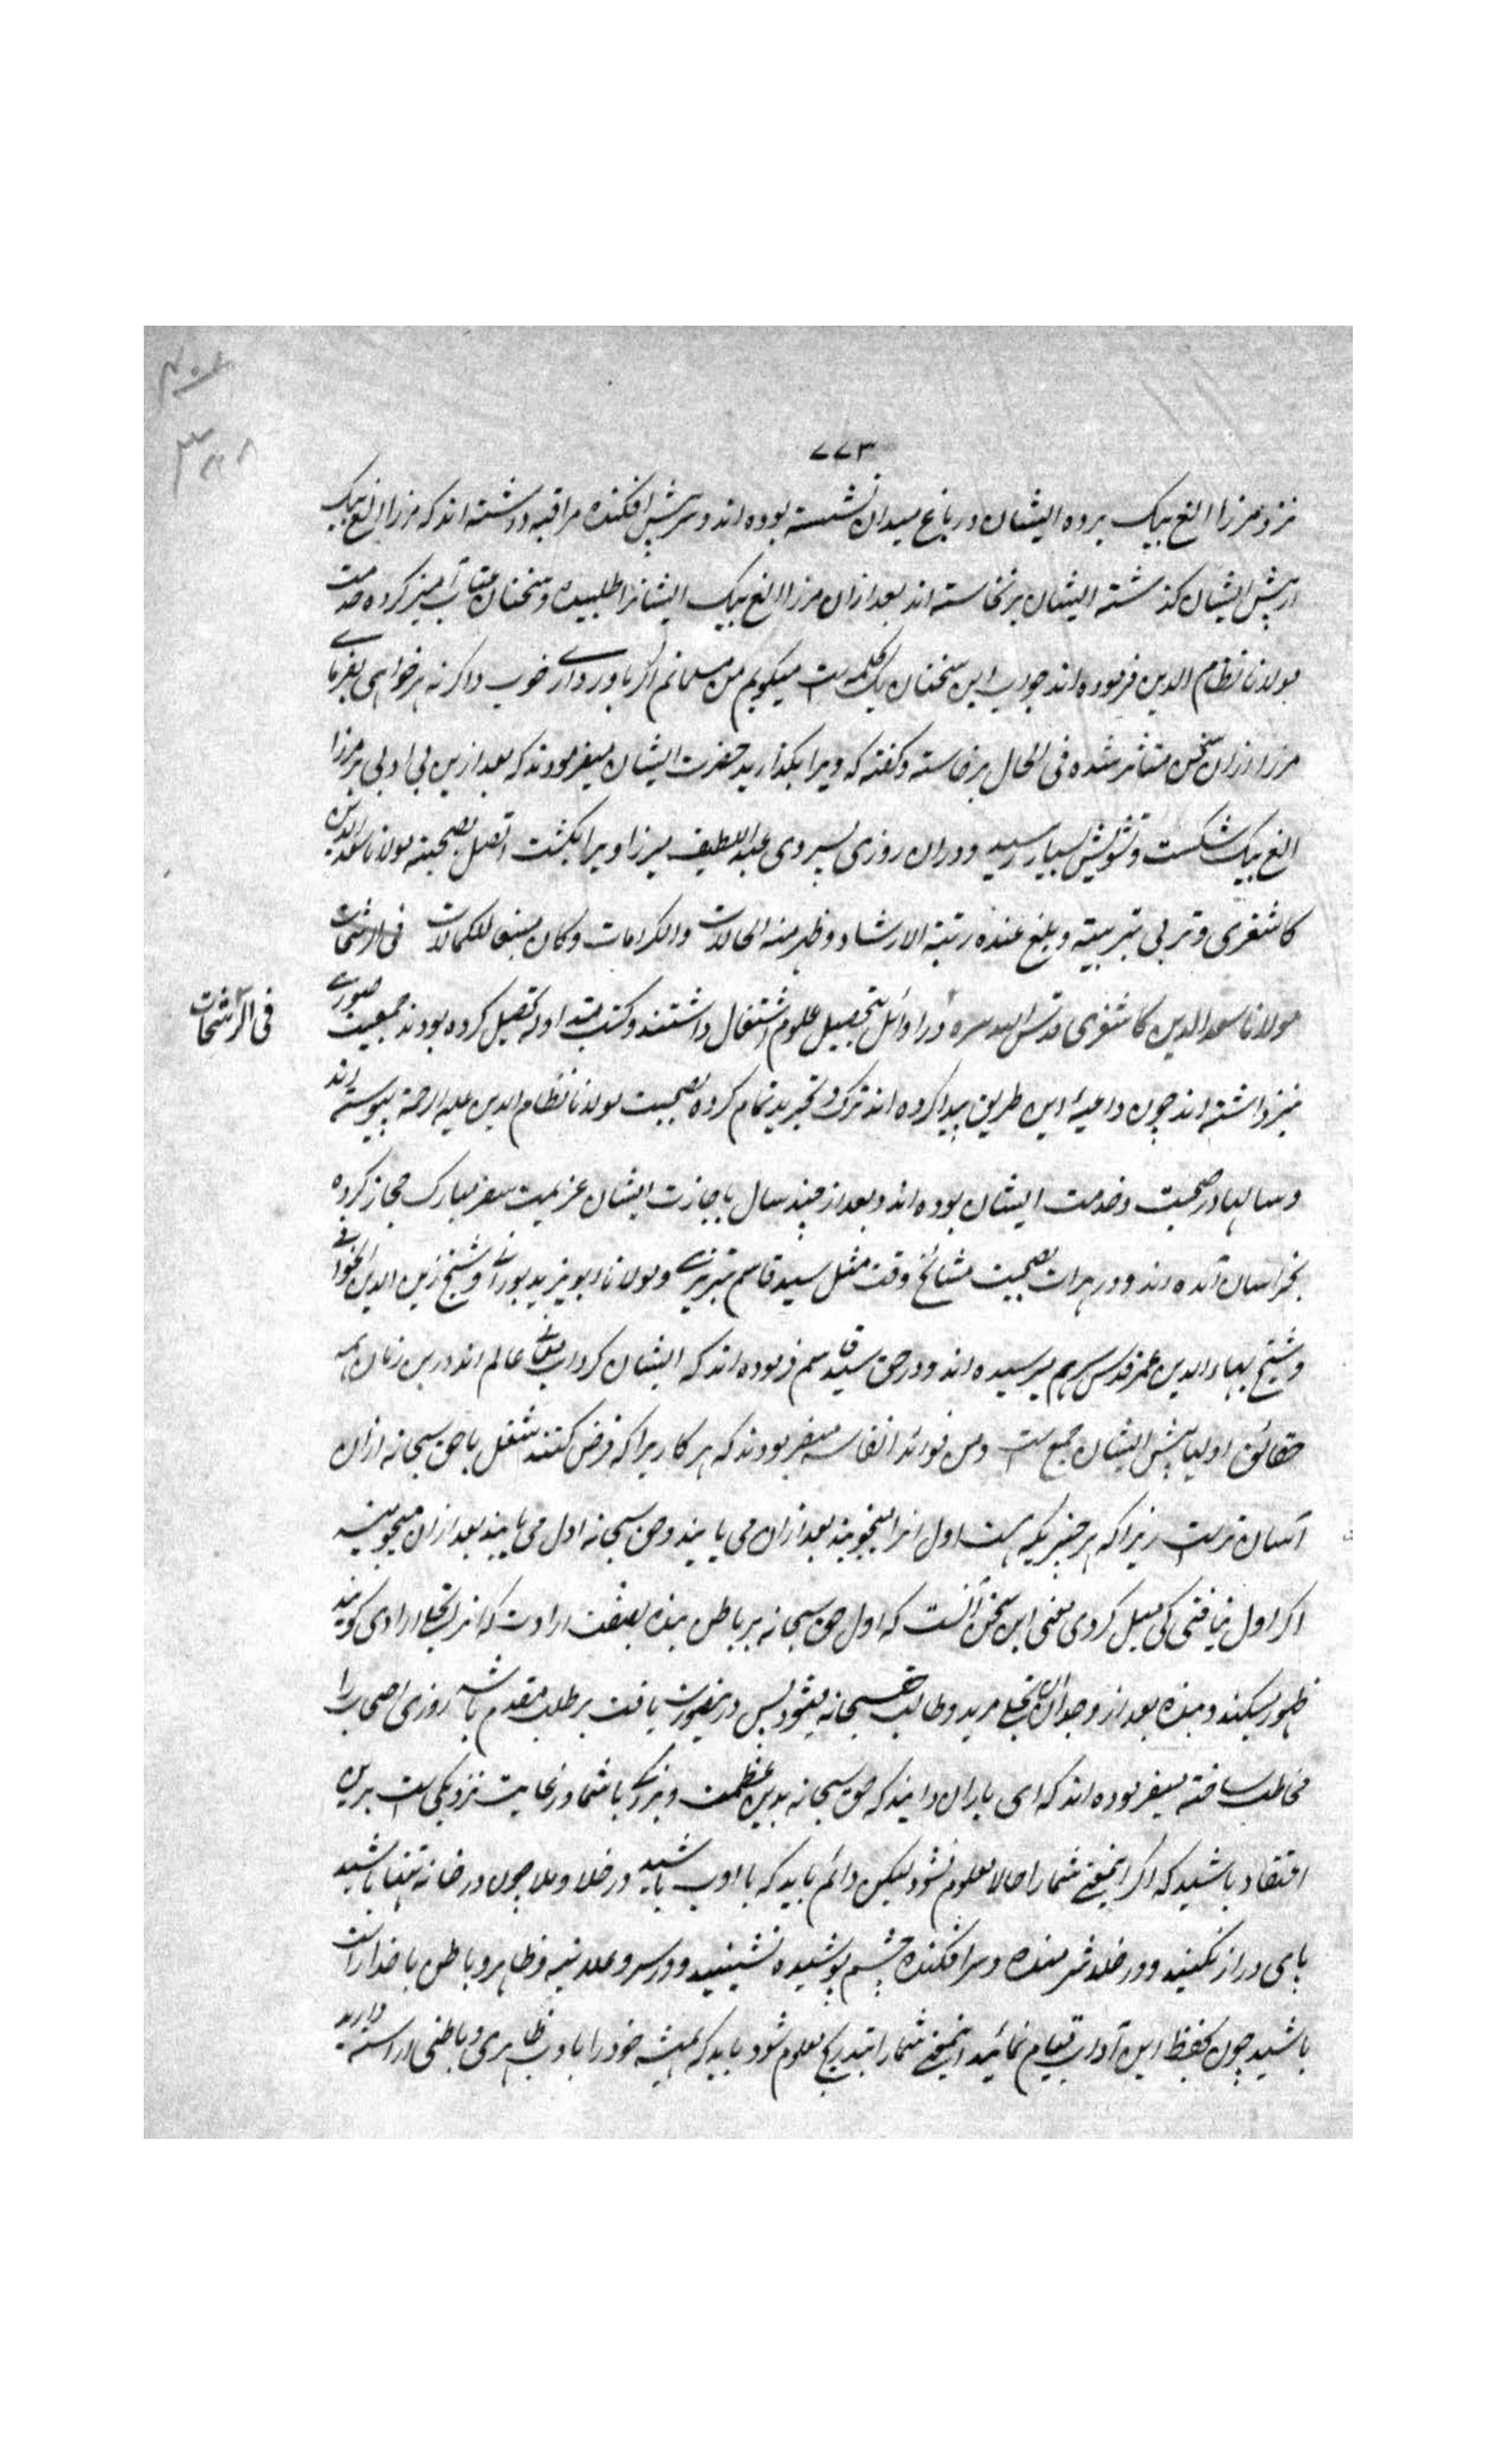 ۷۷۳
نزد مرزا الغ بیک برده ایشان در باغ میدان نشسته بوده اند و سر پیش افکنده مراقبه داشته اند که مرزا الغ بیک
از پیش ایشان گذشته ایشان برنخاسته اند بعد ازان مرزا الغ بیک ایشانرا طلبیده و سخنان عتاب آمیز کرده خدمت
مولانا نظام الدین فرموده اند جواب این سخنان یک کلمه است میگویم من مسلمانم اگر باور داری خوب و اگر نه هر خواهی بفرمای
مرزا ازان سخن متاثر شده فی الحال برخاسته و گفته که ویرا بگذارید حضرت ایشان میفرمودند که بعد ازین بی ادبی بر مرزا
الغ بیک شکست و تشویش بسیار رسید و دران روزی پسر وی عبد اللطیف میرزا ویرا بکشت اتصل بصحبته مولانا سعد الدین
کاشغری و تربی بتربیته و بلغ عنده رتبة الارشاد و ظهر منه الحالات والکرامات و کان منبعا للکمالات فی الرشحات
فی الرشحات
مولانا سعد الدین کاشغری قدس الله سره در اوائل بتحصیل علوم اشتغال داشتند و کتب متداوله تحصیل کرده بودند جمعیت صوری
نیز داشته اند چون داعیهٔ این طریق پیدا کرده اند ترک و تجرید تمام کرده بصحبت مولانا نظام الدین علیه الرحمة پیوسته اند
و سالها در صحبت و خدمت ایشان بوده اند و بعد از چند سال باجازت ایشان عزیمت سفر مبارک حجاز کرده
بخراسان آمده اند و در هرات بصحبت مشائخ وقت مثل سید قاسم تبریزی و مولانا ابو یزید پورانی و شیخ زین الدین الخوافی
و شیخ بهاء الدین عمر قدس سرهم میرسیده اند و در حق سید قاسم فرموده اند که ایشان گرداب معانی عالم اند درین زمان همه
حقائق اولیا پیش ایشان جمع است و من فوائد انفاسه میفرمودند که هر کاریرا که فرض کنند شغل با حق سبحانه ازان
آسان تر است زیرا که هر چیزیکه هست اول انرا میجویند بعد ازان می یابند و حق سبحانه اول می یابند بعد ازان میجویند
اگر اول نیافتی کی میل کردی معنی این سخن آنست که اول حق سبحانه بر باطن بنده بصفت ارادت که انرا تجلی ارادی گویند
ظهور میکند و بنده بعد از وجدان تجلی مرید و طالب حق سبحانه میشود پس درینصورت یافت بر طلب مقدم باشد روزی اصحاب را
مخاطب ساخته میفرموده اند که ای یاران دانید که حق سبحانه بدین عظمت و بزرگی با شما در غایت نزدیکی است برین
اعتقاد باشید که اگر اینمعنی شما را حالا معلوم نشود لیکن دائم باید که با ادب باشید در خلا و ملا چون در خانه تنها باشید
پای دراز نکنید و در خلد شرمنده و سر افکنده چشم پوشیده نشینید و در سر و علانیه و ظاهر و باطن با خدا راست
باشید چون بحفظ این آداب قیام نمائید اینمعنی شما را بتدریج معلوم شود باید که همیشه خود را بادب ظاهری و باطنی اراسته دارید